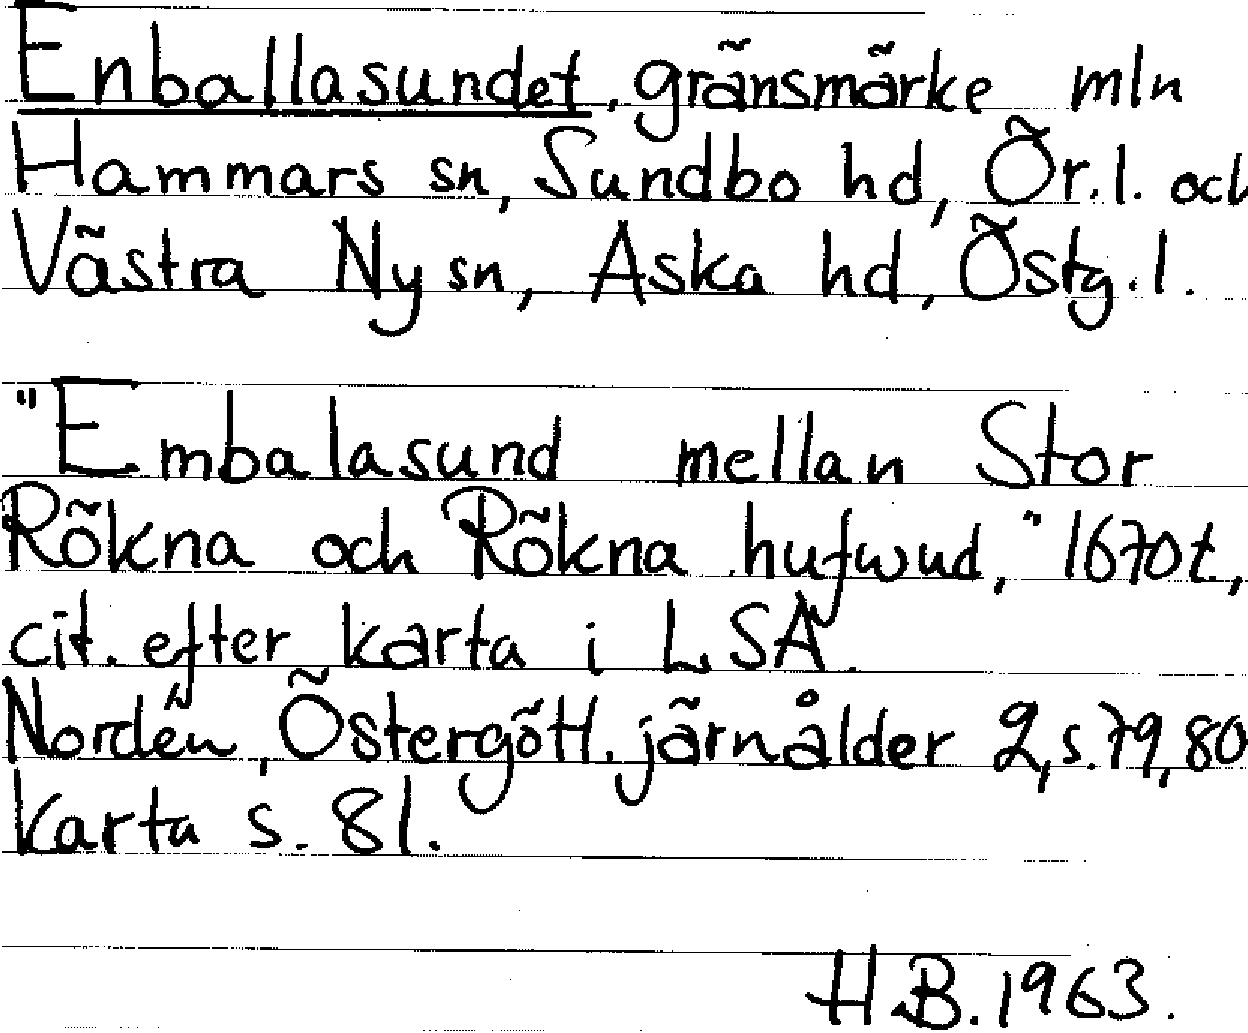 Enballasundet, gränsmärke mln
Hammars sn, Sundbo hd, Ör.l. och
Västra Ny sn, Aska hd, Östg.l.
"Embalasund mellan Stor
Rökna och Rökna hufwud," 1670t.,
cit. efter karta i LSA.
Nordén, Östergötl. järnålder 2, s.79, 80
karta s. 81.
H.B. 1963.